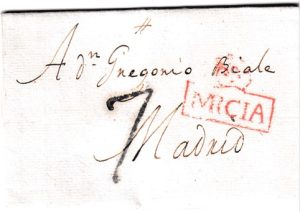 #
A dn Gregorio Beale
MICIA
7
Madrid